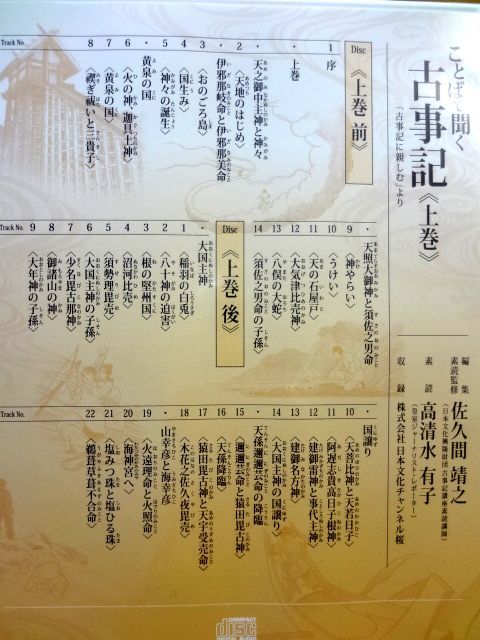 ことばで聞く
古事記《上巻》
「古事記に親しむ」より
編集
素読監修
佐久間靖之
(日本文化興隆財団古事記講座素読講師)
素読
高清水有子
(皇室ジャーナリスト・レポーター)
収録
株式会社日本文化チャンネル桜
Track No.
Disc
《上巻 前》
1 序
上巻
天之御中主神と神々
2 〈天地のはじめ〉
伊邪那岐命と伊邪那美命
3 〈おのごろ島〉
4 〈国生み〉
5 〈神々の誕生〉
6 〈火の神 迦具土神〉
黄泉の国
7 〈黄泉の国〉
8 〈禊ぎ祓いと三貴子〉
Track No.
天照大御神と須佐之男命
9 〈神やらい〉
10 〈うけい〉
11 〈天の石屋戸〉
12 〈大気津比売神〉
13 〈八俣の大蛇〉
14 〈須佐之男命の子孫〉
Disc
《上巻 後》
大国主神
1 〈稲羽の白兎〉
2 〈八十神の迫害〉
3 〈根の堅州国〉
4 〈沼河比売〉
5 〈須勢理毘売〉
6 〈大国主神の子孫〉
7 〈少名毘古那神〉
8 〈御諸山の神〉
9 〈大年神の子孫〉
Track No.
国譲り
10 〈天菩比神と天若日子〉
11 〈阿遅志貴高日子根神〉
12 〈建御雷神と事代主神〉
13 〈建御名方神〉
14 〈大国主神の国譲り〉
天孫邇邇芸命の降臨
15 〈邇邇芸命と猿田毘古神〉
16 〈天孫降臨〉
17 〈猿田毘古神と天宇受売命〉
18 〈木花之佐久夜毘売〉
山幸彦と海幸彦
19 〈火遠理命と火照命〉
20 〈海神宮へ〉
21 〈塩みつ珠と塩ひる珠〉
22 〈鵜葺草葺不合命〉
COMPACT
disc
DIGITAL AUDIO